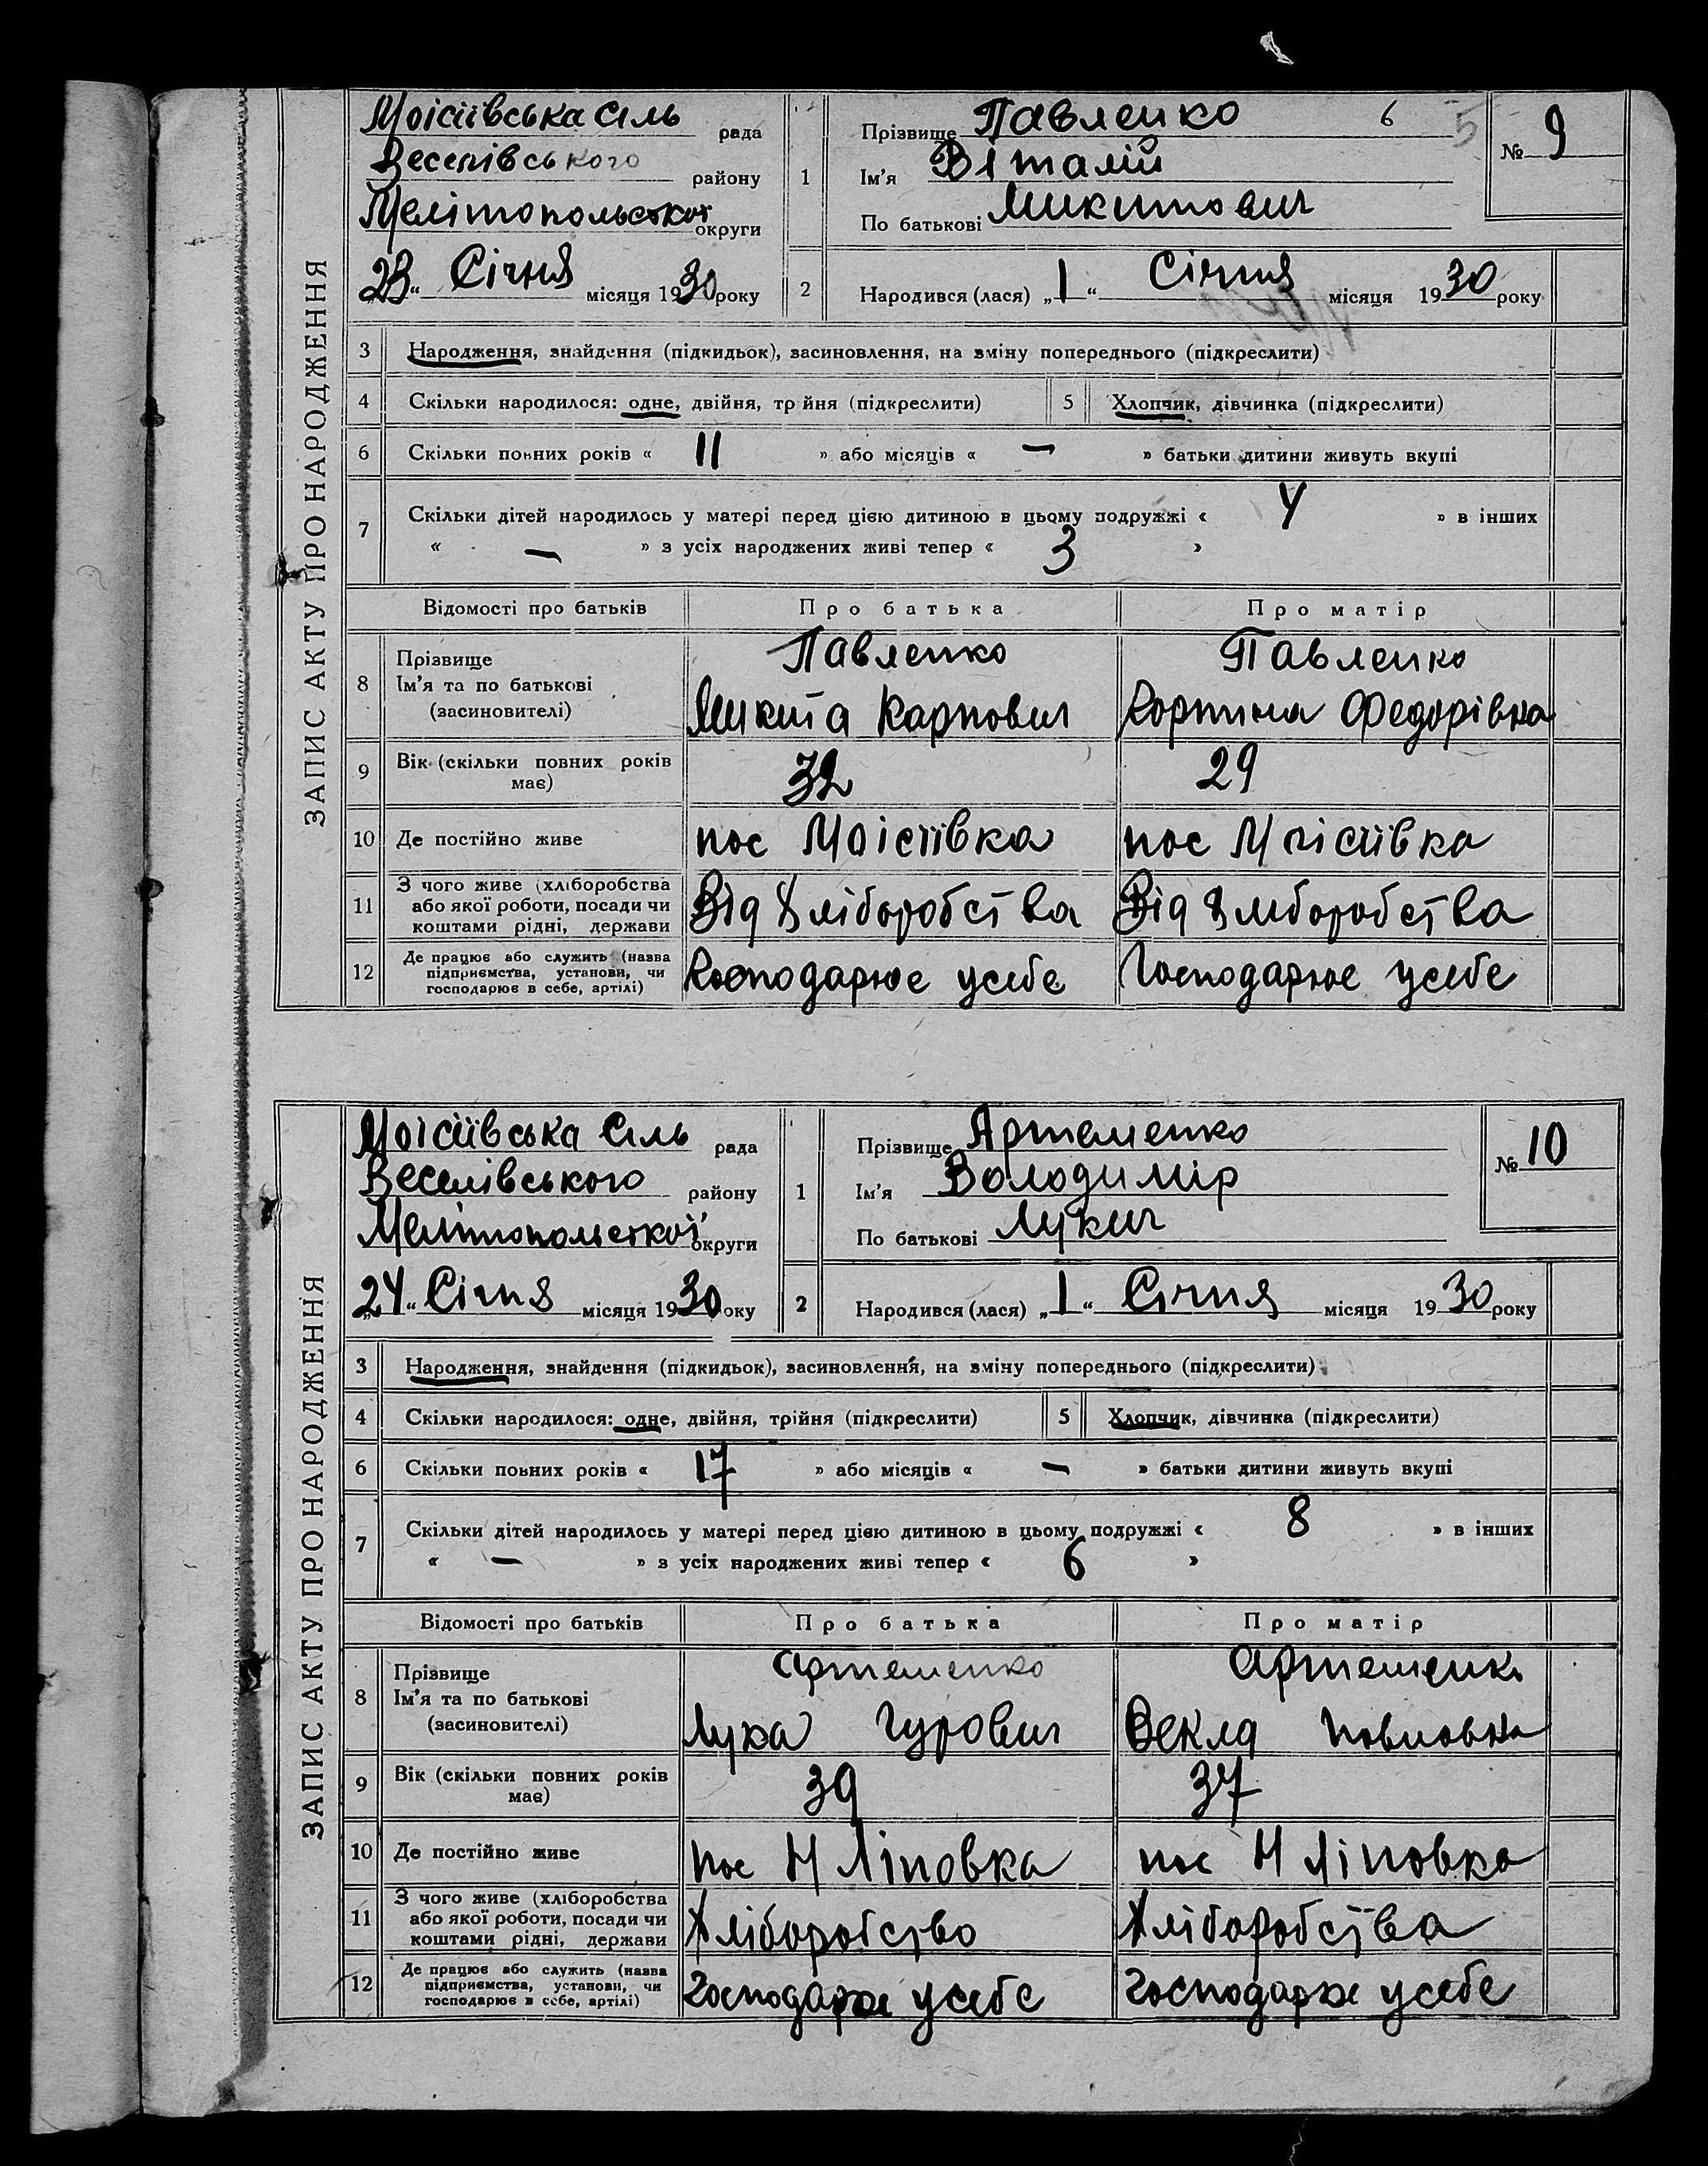 ЗАПИС АКТУ ПРО НАРОДЖЕННЯ
Моісіївська сіль рада
Веселівського району
Мелітопольської округи
„23“ Січня місяця 1930 року
1 Прізвище Павленко 6 5
Ім'я Віталій
По батькові Микитович
№ 9
2 Народився (лася) „1“ Січня місяця 1930 року
3 Народження, знайдення (підкидьок), засиновлення, на зміну попереднього (підкреслити)
4 Скільки народилося: одне, двійня, трійня (підкреслити) 5 Хлопчик, дівчинка (підкреслити)
6 Скільки повних років « 11 » або місяців « — » батьки дитини живуть вкупі
7 Скільки дітей народилось у матері перед цією дитиною в цьому подружжі « 4 » в інших
« — » з усіх народжених живі тепер « 3 »
Відомості про батьків Про батька Про матір
8 Прізвище Ім'я та по батькові (засиновителі)
Павленко Павленко
Микита Карпович Федорівна
9 Вік (скільки повних років має) 32 29
10 Де постійно живе пос Моісіївка пос Моісіївка
11 З чого живе (хліборобства або якої роботи, посади чи коштами рідні, держави Від Хліборобства Від Хліборобства
12 Де працює або служить (назва підприємства, установи, чи господарює в себе, артілі) Господарює усебе Господарює усебе
ЗАПИС АКТУ ПРО НАРОДЖЕННЯ
Моісіївська сіль рада
Веселівського району
Мелітопольської округи
„24“ Січня місяця 1930 року
1 Прізвище Артеменко
Ім'я Володимір
По батькові Лукич
№ 10
2 Народився (лася) „1“ Січня місяця 1930 року
3 Народження, знайдення (підкидьок), засиновлення, на зміну попереднього (підкреслити)
4 Скільки народилося: одне, двійня, трійня (підкреслити) 5 Хлопчик, дівчинка (підкреслити)
6 Скільки повних років « 17 » або місяців « — » батьки дитини живуть вкупі
7 Скільки дітей народилось у матері перед цією дитиною в цьому подружжі « 8 » в інших
« — » з усіх народжених живі тепер « 6 »
Відомості про батьків Про батька Про матір
8 Прізвище Ім'я та по батькові (засиновителі)
Артеменко Артеменко
Лука Гурович Векла
9 Вік (скільки повних років має) 39 37
10 Де постійно живе пос Н Ліповка пос Н Ліповка
11 З чого живе (хліборобства або якої роботи, посади чи коштами рідні, держави Хліборобство Хліборобства
12 Де працює або служить (назва підприємства, установи, чи господарює в себе, артілі) Господарює усебе Господарює усебе